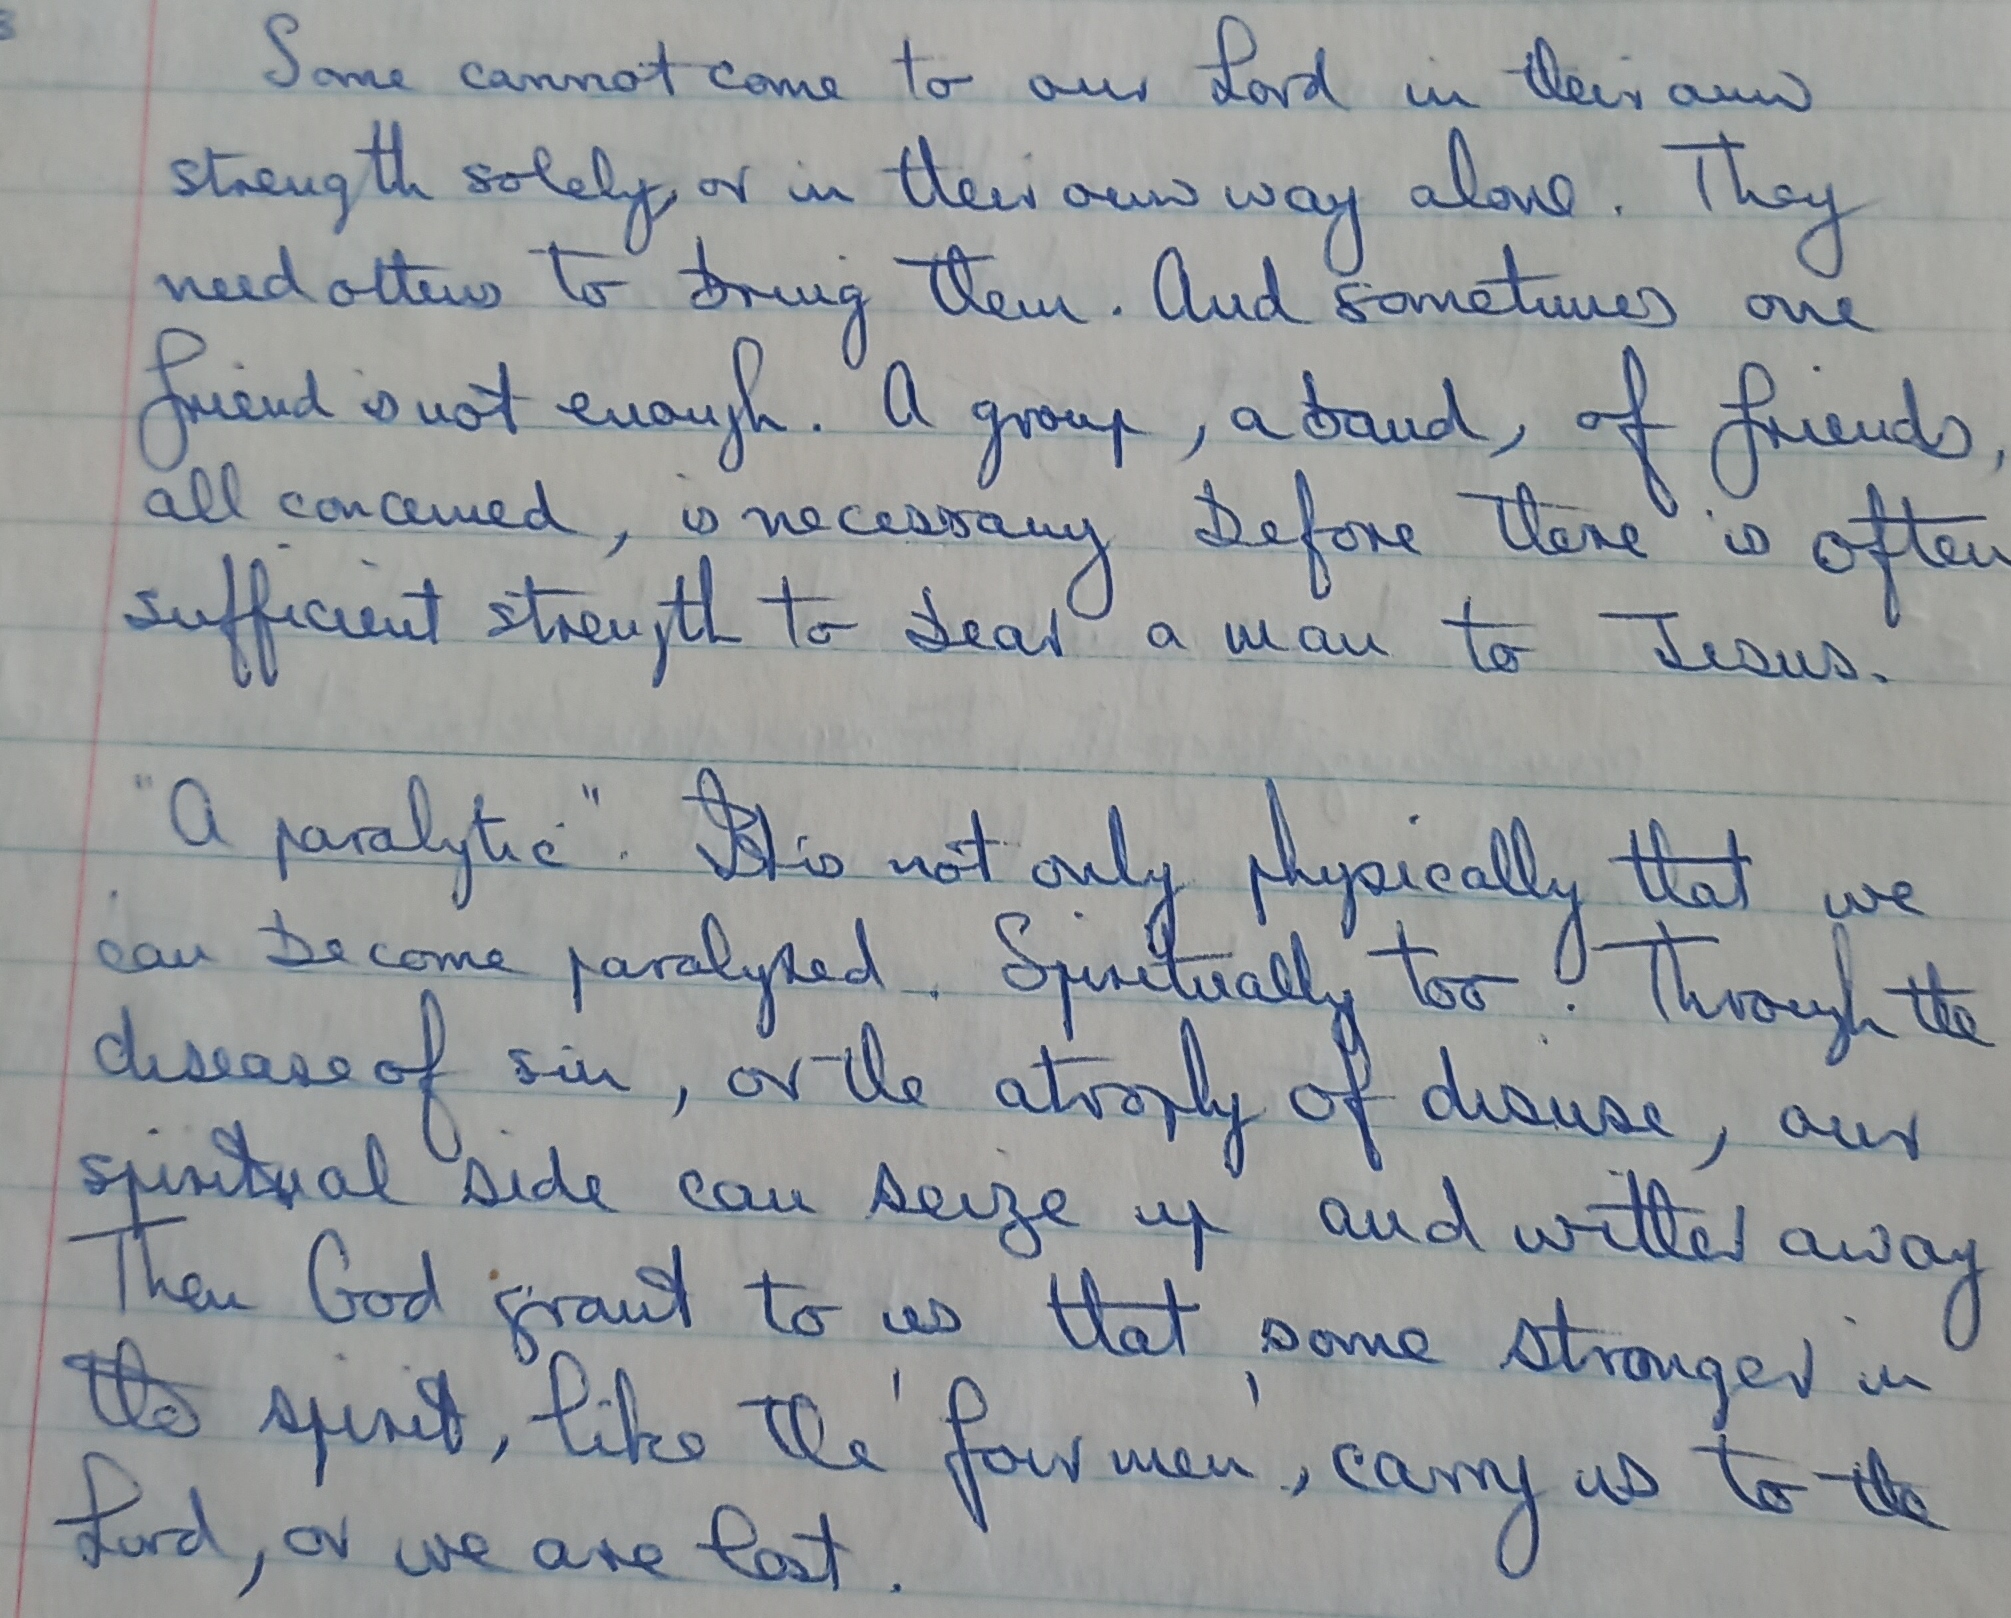 Some cannot come to our Lord in their own
strength solely, or in their own way alone. They
need others to bring them. And sometimes one
friend is not enough. A group, a band, of friends,
all concerned, is necessary before there is often
sufficient strength to bear a man to Jesus.
"A paralytic". It is not only physically that we
can become paralysed. Spiritually too! Through the
disease of sin, or the atrophy of disuse, our
spiritual side can seize up and wither away
Then God grant to us that some stronger in
the spirit, like the 'four men', carry us to the
Lord, or we are lost.